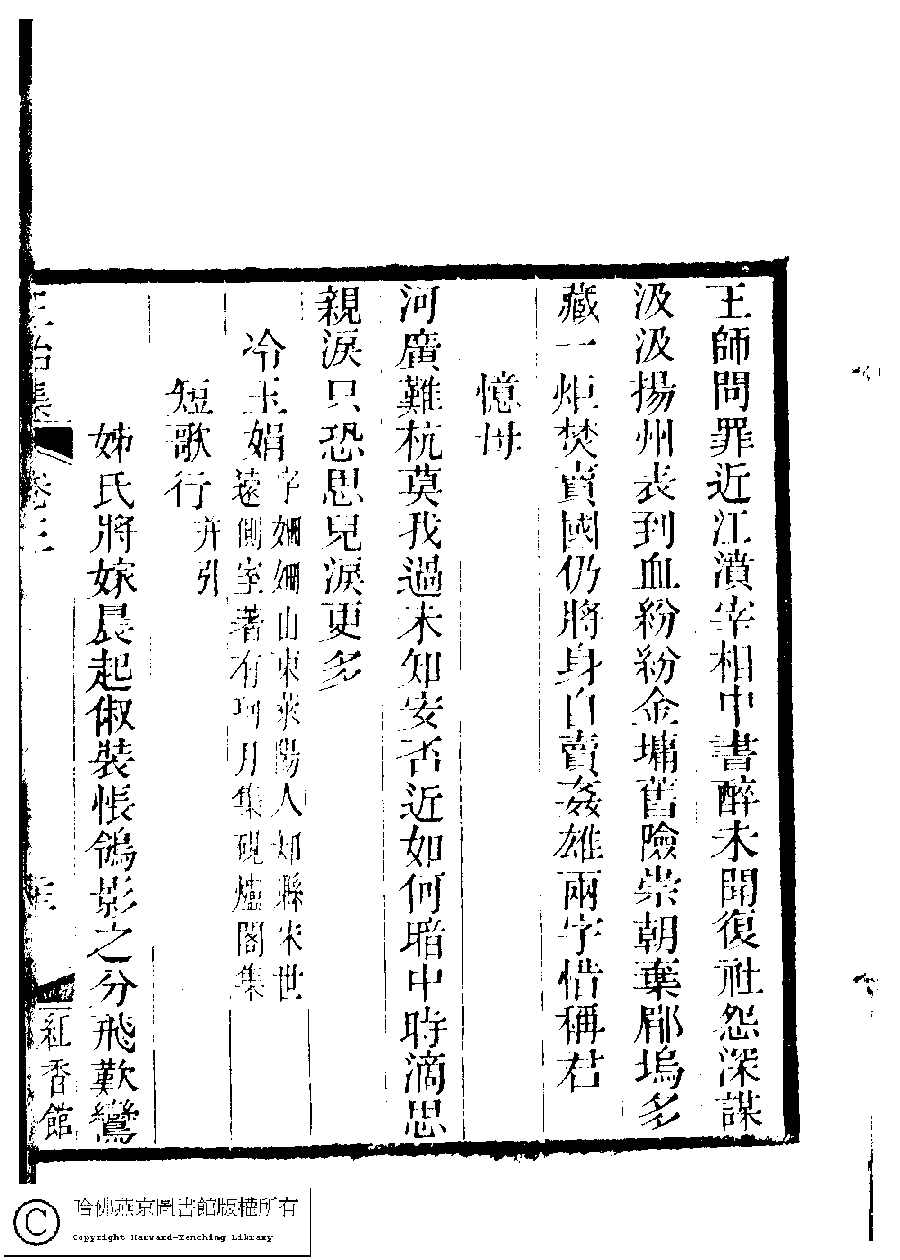 王師問罪近江濆宰相中書醉未聞復社怨深謀
汲汲揚州表到血紛紛金墉舊險崇朝棄郿塢多
藏一炬焚賣國仍將身自賣姦雄兩字惜稱君
憶母
河廣難杭莫我過未知安否近如何暗中時滴思
親淚只恐思兒淚更多
冷玉娟
字姍姍山東萊陽人知縣宋世
遠側室著有珂月集硯爐閣集
短歌行并引
姊氏將嫁晨起俶裝悵鴿影之分飛歎鸞
卷三
紅香館
哈佛燕京圖書館版權所有
Copyright Harvard-Yenching Library